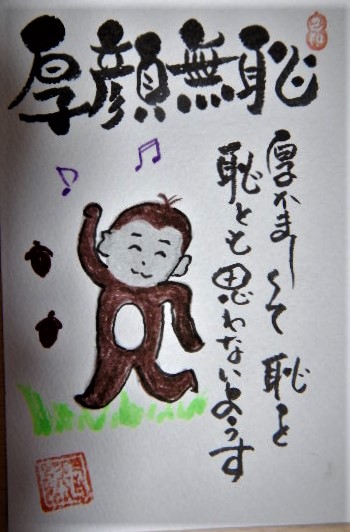 厚顔無恥
厚かましくて 恥を
恥とも思わないようす